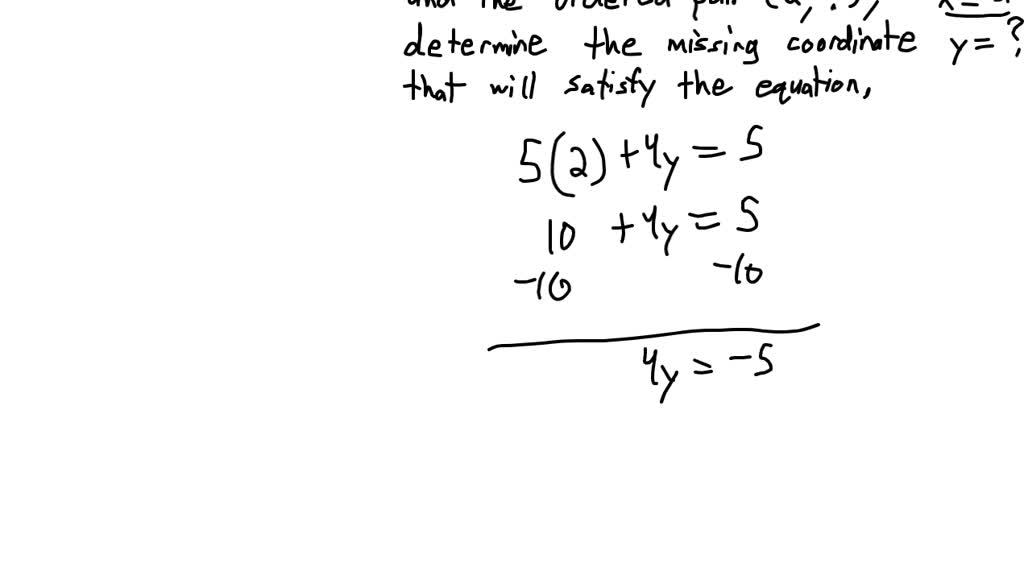 and the ordered pair (2, ?),
determine the missing coordinate y = ?
that will satisfy the equation,
5(2) + 4y = 5
10 + 4y = 5
-10 -10
4y = -5